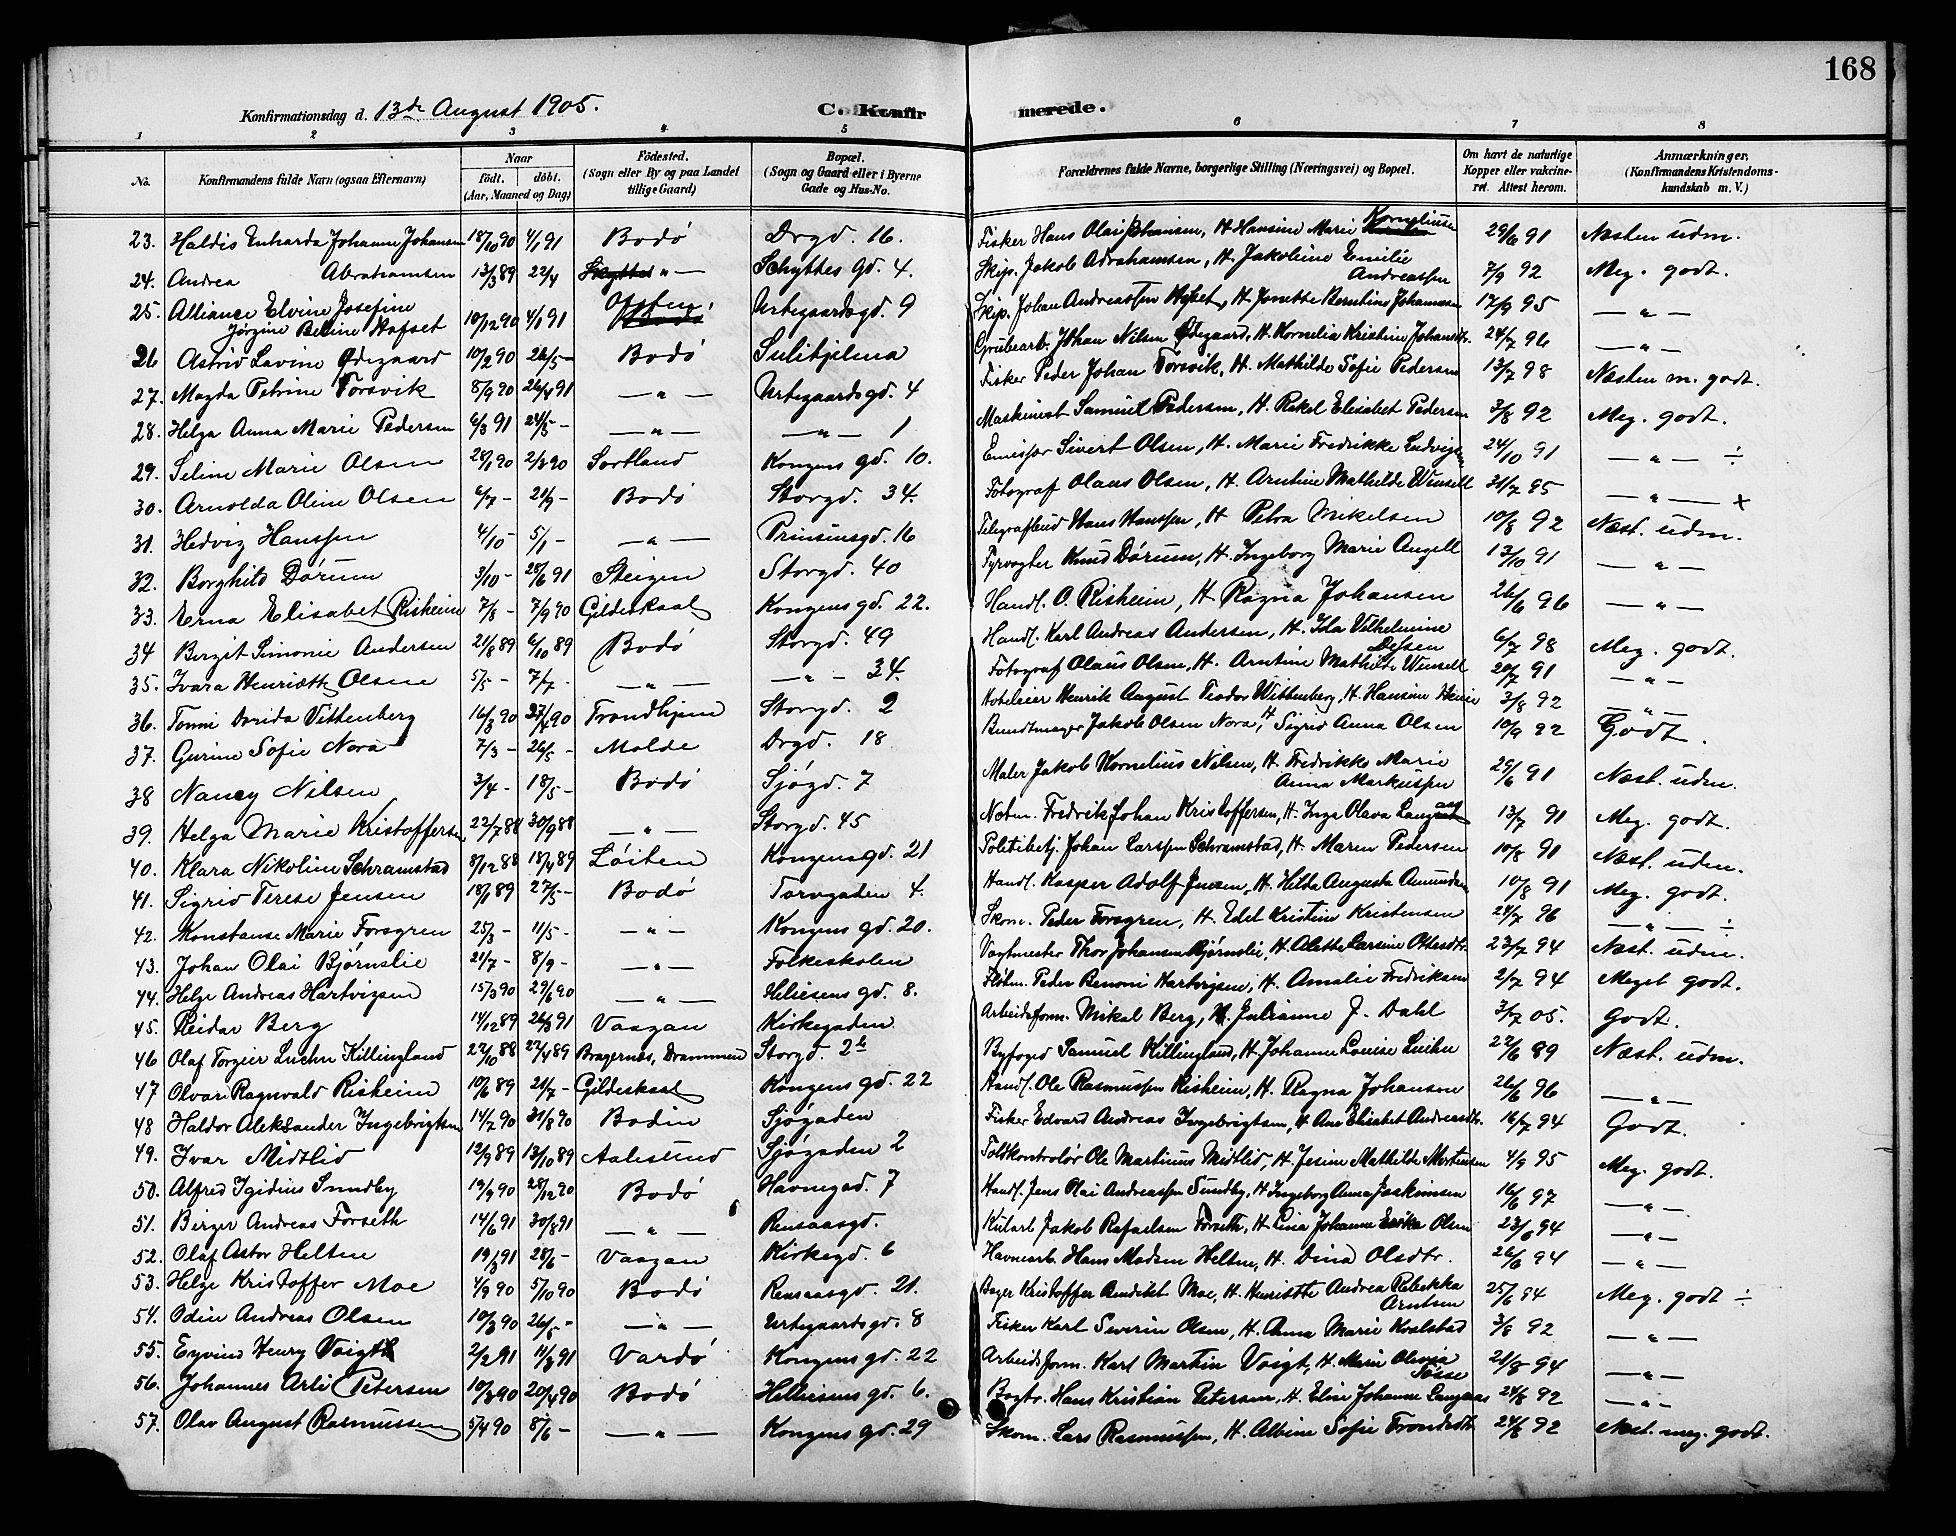 168
Konfirmationsdag d. 13de August 1905. C. Konfirmerede.
1 2 3 4 5 6 7 8
No. Konfirmandens fulde Navn (ogsaa Efternavn) Naar født. døbt. (Aar, Maaned og Dag) Fødested. (Sogn eller By og paa Landet tillige Gaard) Bopæl. (Sogn og Gaard eller i Byerne Gade og Hus-No. Forældrenes fulde Navne, borgerlige Stilling (Næringsvei) og Bopæl. Om havt de naturlige Kopper eller vakcineret. Attest herom. Anmærkninger, (Konfirmandens Kristendomskundskab m. V.)
23. Haldis Enharda Johanne Johansen 18/10 90 4/1 91 Bodø Drgd. 16. Fisker Hans Olai Johansen, H. Hansine Marie Korneliuse 29/6 91 Næsten udm.
24. Andrea Abrahamsen 13/3 89 22/4 — " — Schyttes gd. 4. Skip. Jakob Abrahamsen, H. Jakobine Emilie Andreassen 7/9 92 Meg. godt.
25. Alliance Elvine Josefine Jørgine Beline Hofset 10/12 90 4/1 91 Urtegaardsgd. 9 Skip. Johan Andreassen Hofset, H. Jonette Berntine Johannsen 17/9 95 — " —
26 Astrid Lavine Ødegaard 10/2 90 26/5 — Bodø Sulitjelma Grubearb. Johan Nilsen Ødegaard, H. Kornelia Kristine Johansdtr. 24/7 96 — " —
27. Magda Petrine Torsvik 8/9 90 26/4 91 — " — Urtegaardsgd. 4 Fisker Peder Johan Torsvik, H. Mathilde Sofie Pedersen 13/7 98 Næsten m. godt.
28. Helga Anna Marie Pedersen 6/3 91 24/5 — — " — — " — 1 Maskinist Samuel Pedersen, H. Rakel Elisabet Pedersen 3/8 92 Meg. godt.
29. Seline Marie Olsen 28/1 90 2/3 90 Sortland Kongens gd. 10. Emissær Sivert Olsen, H. Marie Fredrikke Ludvigsen 24/10 91 — " — ÷
30. Arnolda Oline Olsen 6/7 — 21/9 — Bodø Storgd. 34. Fotograf Olaus Olsen, H. Arntine Mathilde Winsell 31/7 95 — " — x
31. Hedvig Hanssen 4/10 — 5/1 — — " — Prinsensgd. 16 Telegrafbud Hans Hanssen, H. Petra Mikelsen 10/8 92 Næst. udm.
32. Borghild Dørum 3/10 — 28/6 91 Steigen Storgd. 40 Fyrvogter Knud Dørum, H. Ingeborg Marie Angell 13/10 91 — " —
33. Erna Elisabet Risheim 7/8 — 7/9 90 Gildeskaal Kongens gd. 22. Handl. O. Risheim, H. Ragna Johansen 26/6 96 — " —
34 Birgit Simonie Andersen 21/8 89 6/10 89 Bodø Storgd. 49 Handl. Karl Andreas Andersen, H. Ida Vilhelmine 6/7 98 Meg. godt.
35. Ivara Henriette Olsen 5/5 — 7/7 — — " — — " — 34. Fotograf Olaus Olsen, H. Arntine Mathilde Winsell 20/7 91 — " —
36. Tonni Dorida Vittenberg 16/3 90 27/4 90 Trondhjem Storgd. 2 Hoteleier Henrik August Teodor Wittenberg, H. Hansine 3/8 92 — " —
37. Gurine Sofie Nora 7/3 — 26/5 — Molde Drgd. 18 Bundtmager Jakob Olsen Nora, H. Sigrid Anna Olsen 10/9 92 Godt.
38 Nancy Nilsen 3/4 — 18/5 — Bodø Sjøgd. 7 Maler Jakob Kornelius Nilsen, H. Fredrikke Marie Anna Markussen 29/6 91 Næst. udm.
39. Helga Marie Kristoffersen 22/7 88 30/9 88 — " — Storgd. 45 Fredrik Johan Kristoffersen, H. Inga Olava 13/7 91 Meg. godt.
40. Klara Nikoline Schramstad 8/12 88 18/4 89 Løiten Kongensgd. 21 Politibetj. Johan Larssen Schramstad, H. Maren Pedersen 10/8 91 Næst. udm.
41. Sigrid Terese Jensen 18/1 89 27/5 — Bodø Torvgaden 4. Handl. Kasper Adolf Jensen, H. Hilda Augusta Amundsen 10/8 91 Meg. godt.
42. Konstanse Marie Forsgren 25/3 — 11/5 — — " — Kongens gd. 20. Skom. Peder Forsgren, H. Edel Kristine Kristensen 24/7 96 — " — ÷
43. Johan Olai Bjørnslie 21/7 — 8/9 — — " — Folkeskolen Vagtmester Thor Johansen Bjørnslie, H. Alette Larsine Ottesdtr. 23/7 94 Næst. udm.
44. Helge Andreas Hartvigsen 15/3 90 29/6 90 — " — Heliesens gd. 8. Peder Benoni Hartvigsen, H. Amalie Fredriksen 2/7 94 Meget godt.
45. Reidar Berg 14/12 89 26/3 91 Vaagan Kirkegaden Arbeidsform. Mikal Berg, H. Julianne J. Dahl 3/7 05. Godt.
46 Olaf Torgeir Luihn Killingland 22/10 88 22/4 89 Bragernes, Drammen Storgd. 2b Byfoged Samuel Killingland, H. Johanne Louise Luihn 22/6 89 Næst. udm.
47 Olvar Ragnvald Risheim 10/6 89 21/7 — Gildeskaal Kongens gd. 22 Handl. Ole Rasmussen Risheim, H. Ragna Johansen 26/6 96 — " —
48 Haldor Aleksander Ingebrigtsen 14/7 90 31/8 90 Bodin Sjøgaden Fisker Edvard Andreas Ingebrigtsen, H. Ane Elisabet Andreasdtr. 16/7 94 Godt.
49. Ivar Midtlid 12/9 89 13/10 89 Aalesund Sjøgaden 2 Toldkontrolør Ole Martinus Midtlid, H. Jesine Mathilde Mortensen 4/9 95 Meg. godt.
50. Alfred Igidius Sundby 19/9 90 28/12 90 Bodø Havnegad. 7 Handl. Jens Olai Andreassen Sundby, H. Ingeborg Anna Joakimsen 16/6 97 — " —
51. Birger Andreas Forseth 14/6 91 30/8 91 — " — Rensaasgd. Kularb. Jakob Rafaelsen Forseth, H. Lina Johanne Erika Olsen 23/6 94 — " —
52. Olaf Astor Helten 19/3 91 28/6 — Vaagan Kirkegd. 6 Havnearb. Hans Madsen Helten, H. Dina Olsdtr. 26/6 94 — " —
53. Helge Kristoffer Moe 4/9 90 5/10 90 Bodø Rensaasgd. 21. Bager Kristoffer Bendikt Moe, H. Henriette Andrea Rebekka Arntsen 25/6 94 Meg. godt ÷
54. Odin Andreas Olsen 10/3 90 26/5 — — " — Urtegaardsgd. 8 Fisker Karl Severin Olsen, H. Anna Marie Kvalstad 3/8 92 — " —
55. Eyvind Henry Voigt 2/2 91 11/3 91 Vardø Kongens gd. 22 Arbeidsform. Karl Martin Voigt, H. Marie Olivia 21/8 94 — " —
56. Johannes Arli Petersen 10/3 90 20/4 90 Bodø Helliesens gd. 6. Bogtr. Hans Kristian Petersen, H. Elise Johanne Langaas 24/8 92 — " —
57. Olav August Rasmussen 5/4 90 8/6 — — " — Kongens gd. 29 Skom. Lars Rasmussen, H. Albine Sofie Trondsdtr. 24/8 92 Næst. meg. godt.